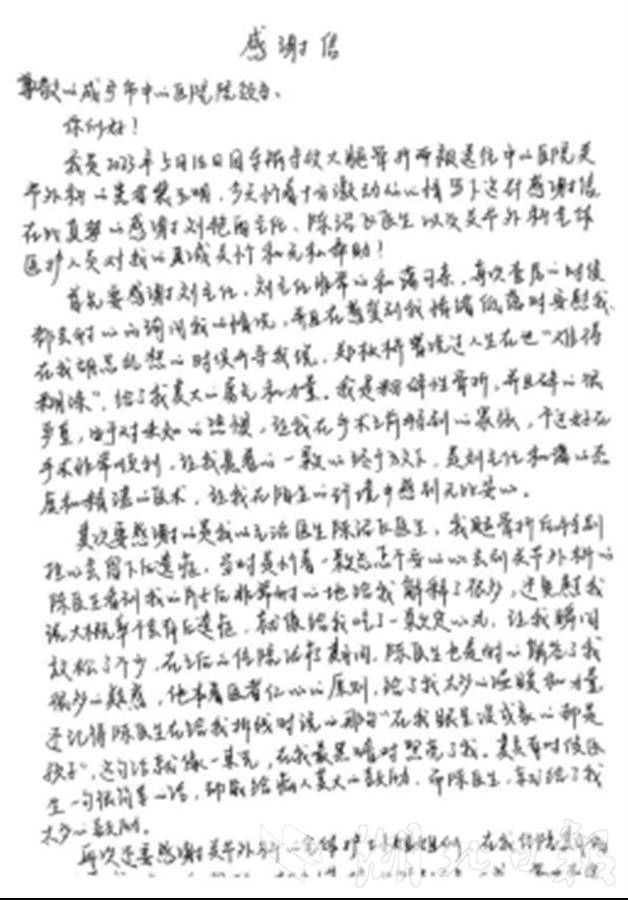 感谢信
尊敬的咸宁市中心医院院领导、
你们好！
我是2023年5月15日因车祸导致大腿骨折而被送往中心医院关
节外科的患者 明，今天怀着十分激动的心情写下这封感谢信
在此真挚的感谢刘艳 主任、陈 飞医生以及关节外科全体
医护人员对我的真诚关怀和无私帮助！
首先要感谢刘主任，刘主任非常的和蔼可亲，每次查房的时候
都会耐心的询问我的情况，并且在感觉到我情绪低落时安慰我、
在我胡思乱想的时候开导我说，郑板桥曾说过人生在世"难得
糊涂"，给了我莫大的勇气和力量。我是粉碎性骨折，并且碎的很
严重，由于对未知的恐惧，让我在手术之前特别的紧张，不过好在
手术非常顺利，让我悬着的一颗心终于放下，是刘主任和蔼的态
度和精湛的医术，让我在陌生的环境中感到无比安心。
其次要感谢的是我的主治医生陈 飞医生，我腿骨折后特别
担心会留下后遗症，当时是怀着一颗忐忑不安的心去到关节外科的
陈医生看到我的 后非常耐心地给我解释了很多，还安慰我
说大概率不会有后遗症，就像给我吃了一颗定心丸，让我瞬间
放松了不少，在之后的住院治疗期间，陈医生也是耐心解答了我
很多的疑惑，他本着医者仁心的原则，给了我太多的温暖和力量
还记得陈医生在给我拆线时说的那句"在我眼里没成家的都是
孩子"，这句话就像一束光，在我最黑暗时照亮了我。其实有时候医
生一句很简单的话，却能给病人莫大的鼓励，而陈医生，车祸给了我
太多的鼓励。
再次还要感谢关节外科的全体护士姐姐们，在我住院期间
湖北日报